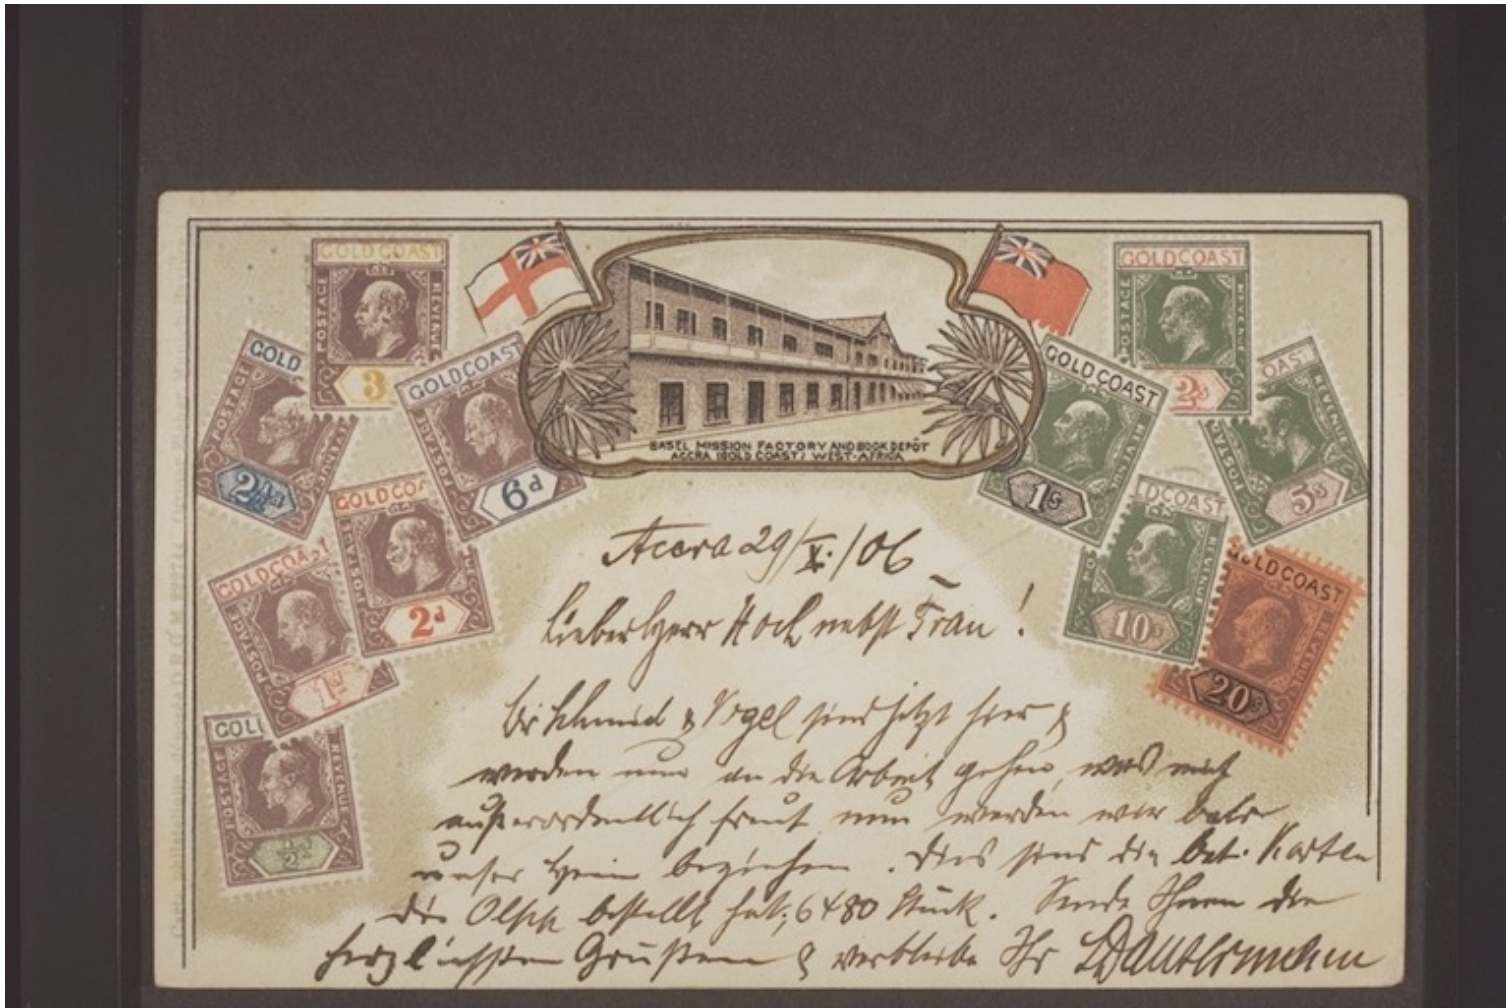 GOLD COAST
POSTAGE
REVENUE
3
GOLD
POSTAGE
2½d
GOLD COAST
POSTAGE
6d
GOLD CO
POSTAGE
2d
GOLD COAST
POSTAGE
1d
GOLD
POSTAGE
REVENUE
½d
BASEL MISSION FACTORY AND BOOK DEPÔT
ACCRA (GOLD COAST) WEST-AFRICA
GOLD COAST
POSTAGE
REVENUE
2s
GOLD COAST
REVENUE
1s
OAST
REVENUE
5s
LD COAST
REVENUE
10s
GOLD COAST
REVENUE
20s
Accra 29/X./06
Lieber Herr Hoch nebst Frau!
Br Schmid & Vogel sind jetzt hier &
werden nun an die Arbeit gehen, was mich
außerordentlich freut nun werden wir bald
unser Heim beziehen. Dies sind die bet. Karten
die Olpp bestellt hat, 6480 Stück. Sende Ihnen die
herzlichsten Grüßen & verbleibe Ihr